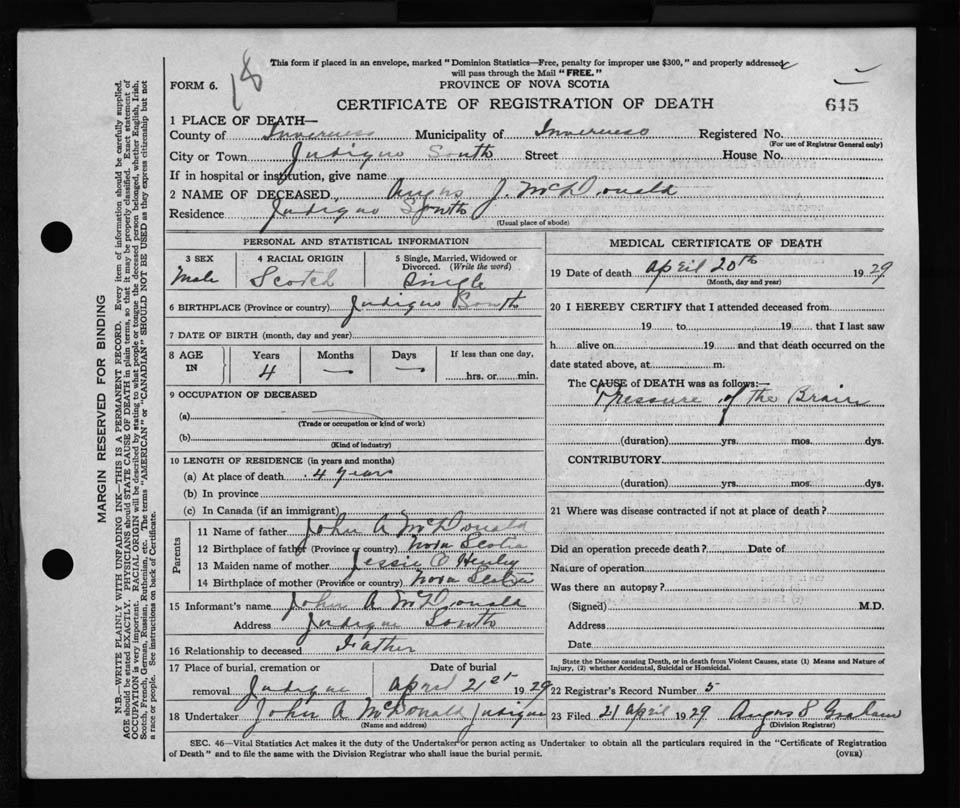 This form if placed in an envelope, marked "Dominion Statistics—Free, penalty for improper use $300," and properly addressed
will pass through the Mail "FREE."
18
FORM 6.
PROVINCE OF NOVA SCOTIA
CERTIFICATE OF REGISTRATION OF DEATH
645
1 PLACE OF DEATH—
County of Inverness Municipality of Inverness Registered No.
(For use of Registrar General only)
City or Town Judique South Street House No.
If in hospital or institution, give name
2 NAME OF DECEASED Angus J. McDonald
Residence Judique South
(Usual place of abode)
PERSONAL AND STATISTICAL INFORMATION
3 SEX 4 RACIAL ORIGIN 5 Single, Married, Widowed or
Divorced. (Write the word)
Male Scotch Single
6 BIRTHPLACE (Province or country) Judique South
7 DATE OF BIRTH (month, day and year)
8 AGE IN Years Months Days If less than one day,
4 — — hrs. or min.
9 OCCUPATION OF DECEASED
(a)
(Trade or occupation or kind of work)
(b)
(Kind of industry)
10 LENGTH OF RESIDENCE (in years and months)
(a) At place of death 4 years
(b) In province
(c) In Canada (if an immigrant)
Parents
11 Name of father John A McDonald
12 Birthplace of father (Province or country) Nova Scotia
13 Maiden name of mother Jessie
14 Birthplace of mother (Province or country) Nova Scotia
15 Informant's name John A McDonald
Address Judique South
16 Relationship to deceased Father
17 Place of burial, cremation or Date of burial
removal Judique April 21st 1929
18 Undertaker John A McDonald Judique
(Name and address)
MEDICAL CERTIFICATE OF DEATH
19 Date of death April 20th 1929
(Month, day and year)
20 I HEREBY CERTIFY that I attended deceased from
19 to 19 that I last saw
h alive on 19 and that death occurred on the
date stated above, at m.
The CAUSE of DEATH was as follows:—
Pressure of the Brain
(duration) yrs. mos. dys.
CONTRIBUTORY
(duration) yrs. mos. dys.
21 Where was disease contracted if not at place of death?
Did an operation precede death? Date of
Nature of operation
Was there an autopsy?
(Signed) M.D.
Address
Date
State the Disease causing Death, or in death from Violent Causes, state (1) Means and Nature of
Injury, (2) whether Accidental, Suicidal or Homicidal.
22 Registrar's Record Number 5
23 Filed 21 April 1929 Angus S Graham
(Division Registrar)
SEC. 46—Vital Statistics Act makes it the duty of the Undertaker or person acting as Undertaker to obtain all the particulars required in the "Certificate of Registration
of Death" and to file the same with the Division Registrar who shall issue the burial permit.
(OVER)
MARGIN RESERVED FOR BINDING
N.B.—WRITE PLAINLY WITH UNFADING INK—THIS IS A PERMANENT RECORD. Every item of information should be carefully supplied.
AGE should be stated EXACTLY. PHYSICIANS should STATE CAUSE OF DEATH in plain terms, so that it may be properly classified. Exact statement of
OCCUPATION is very important. RACIAL ORIGIN will be described by stating to what people or tongue the deceased person belonged, whether English, Irish,
Scotch, French, German, Russian, Ruthenian, etc. The terms "AMERICAN" or "CANADIAN" SHOULD NOT BE USED as they express citizenship but not
a race or people. See instructions on back of Certificate.